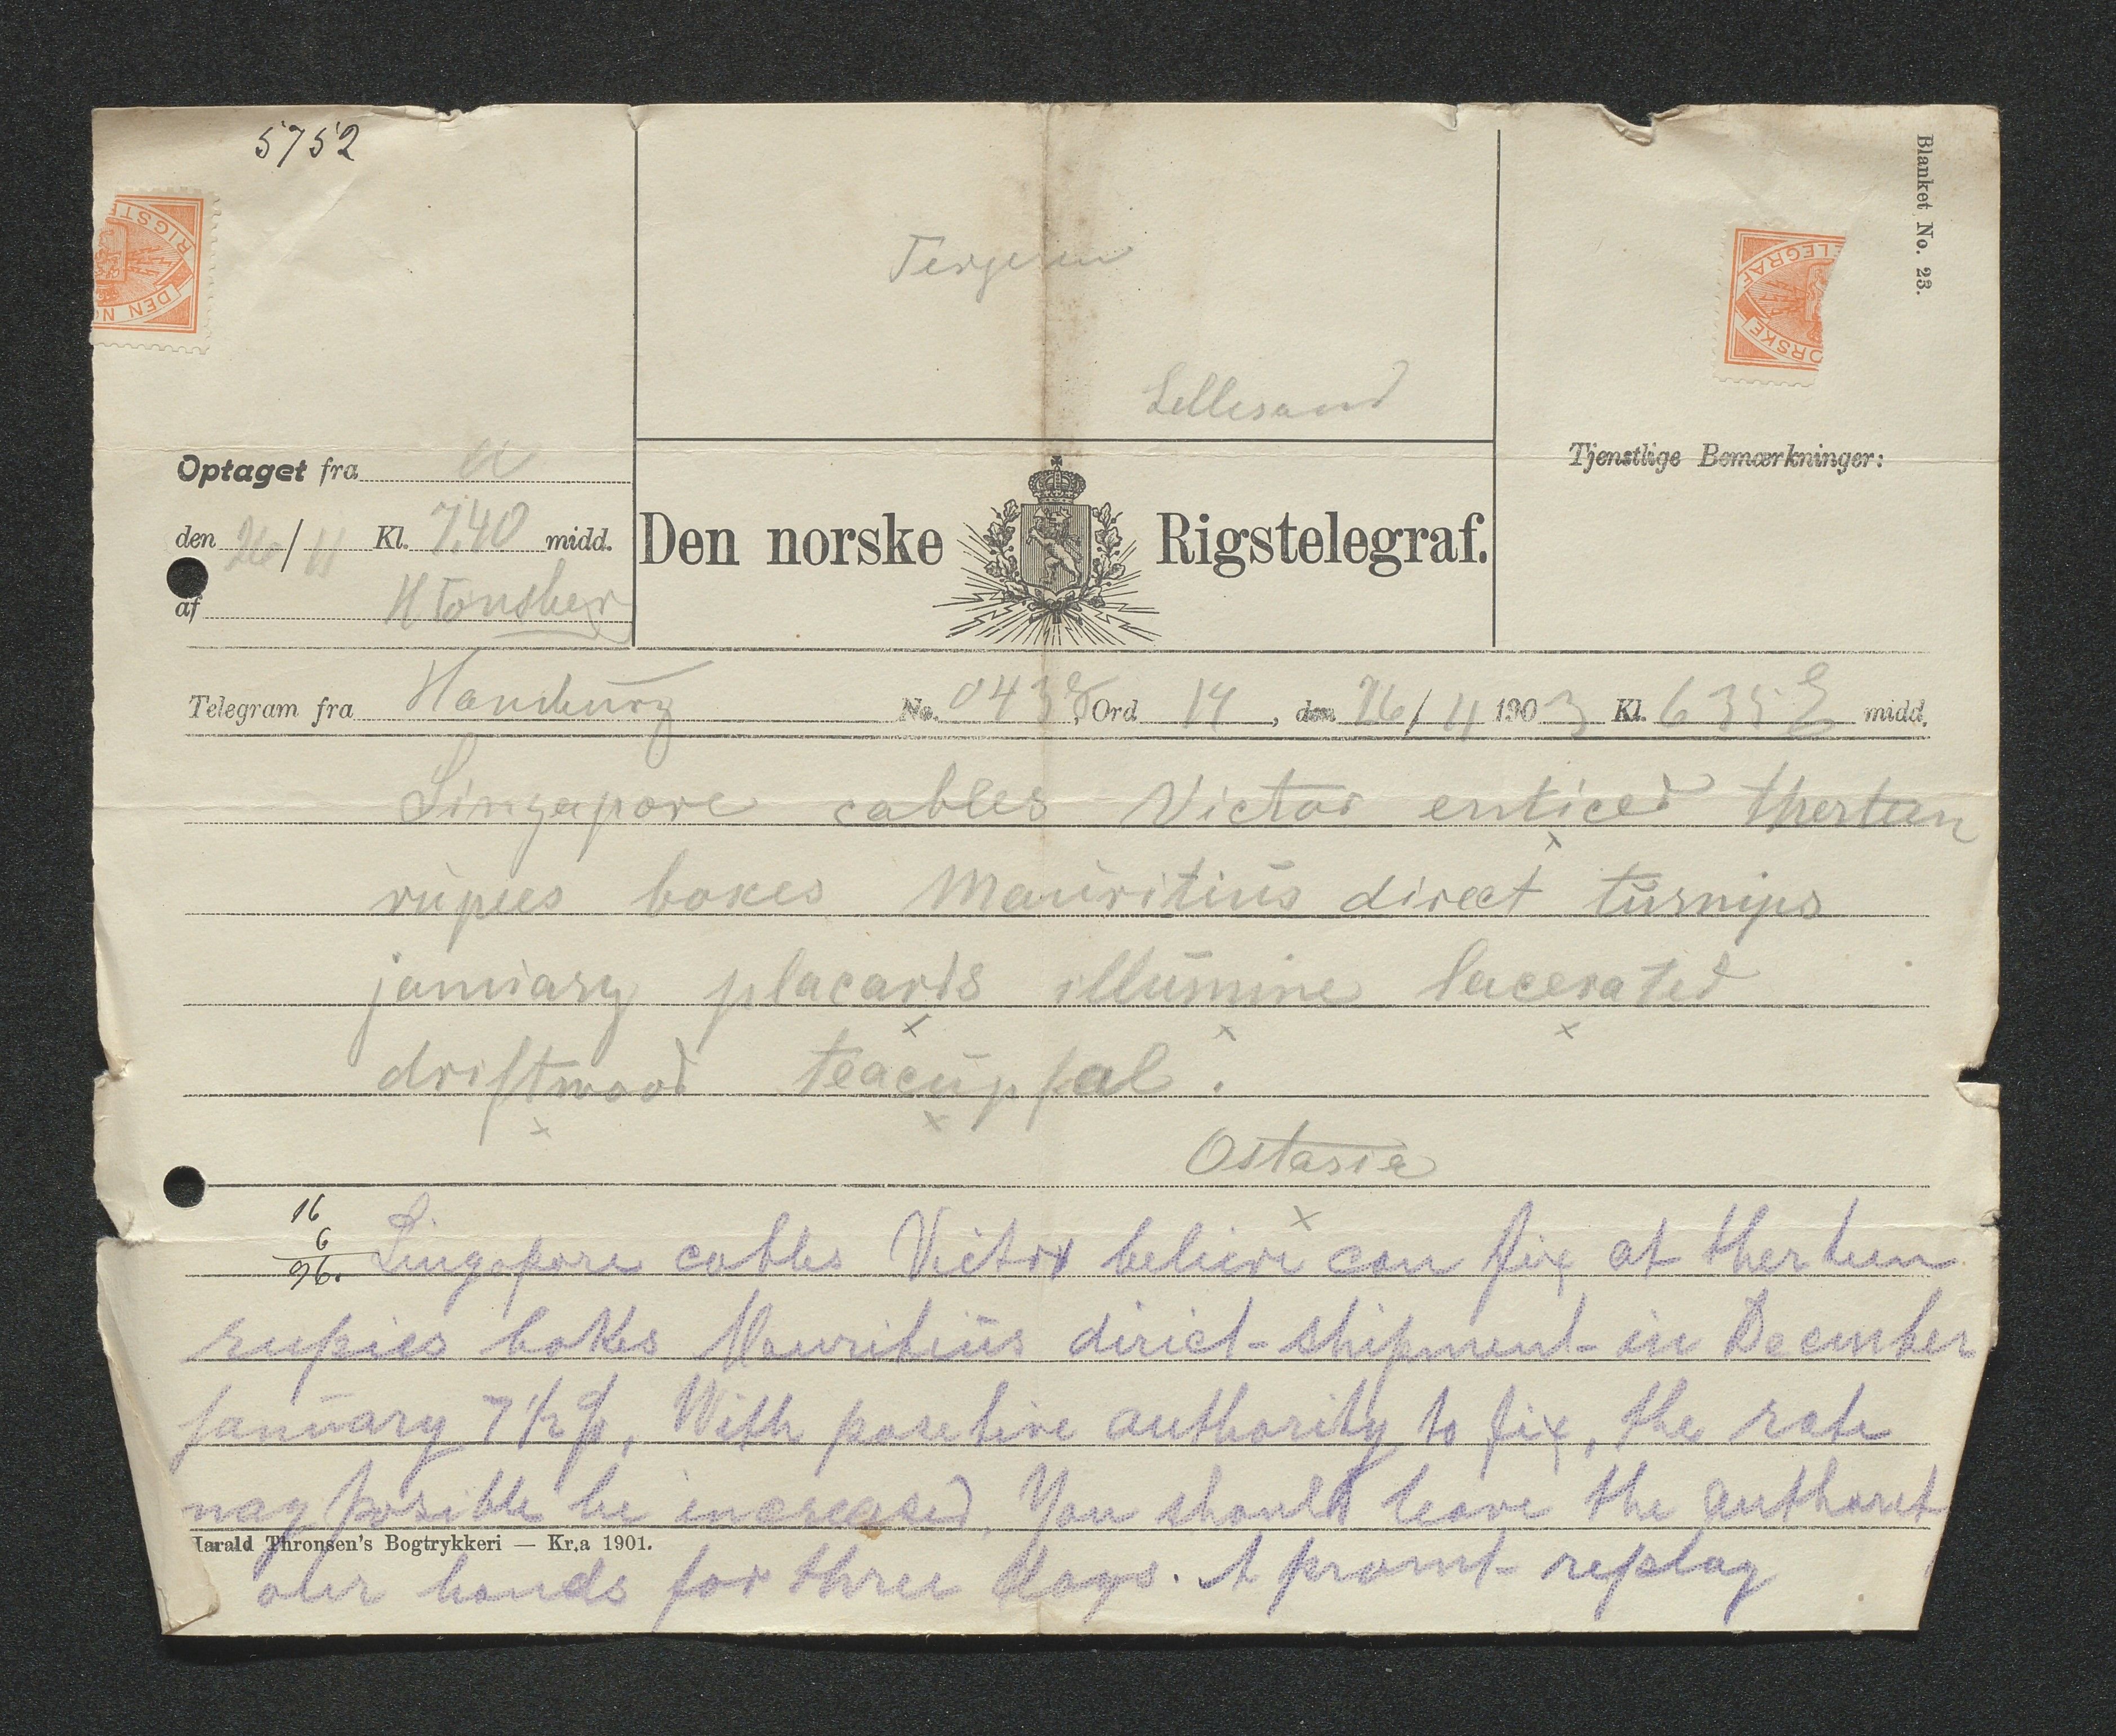 5752
RIGSTE
DEN NO
Tergesen
Lillesand
ELEGRAF
ORSKE
Blanket No. 23.
Optaget fra a
den 26/11 Kl. 7.40 midd.
af H Tönsber
Den norske Rigstelegraf.
Tjenstlige Bemærkninger:
Telegram fra Hamburg No. 0438, Ord 19, den 26/11 1903 Kl. 635 E midd.
Singapore cables Victor enticed therteen
rupees bokes Mauritius direct turnips
january placards illumine lacerated
driftwood teacupful.
Ostasia
16
6
96.
Singapore cables Victor believe can fix at therteen
rupies bokes Mauritius direct-shipment-in December
January 7 1/2 %, With posetive authority to fix, the rate
may posible be increased. You should leave the authoret
ohr hands for three days. A promt-replay
Harald Thronsen's Bogtrykkeri — Kr.a 1901.